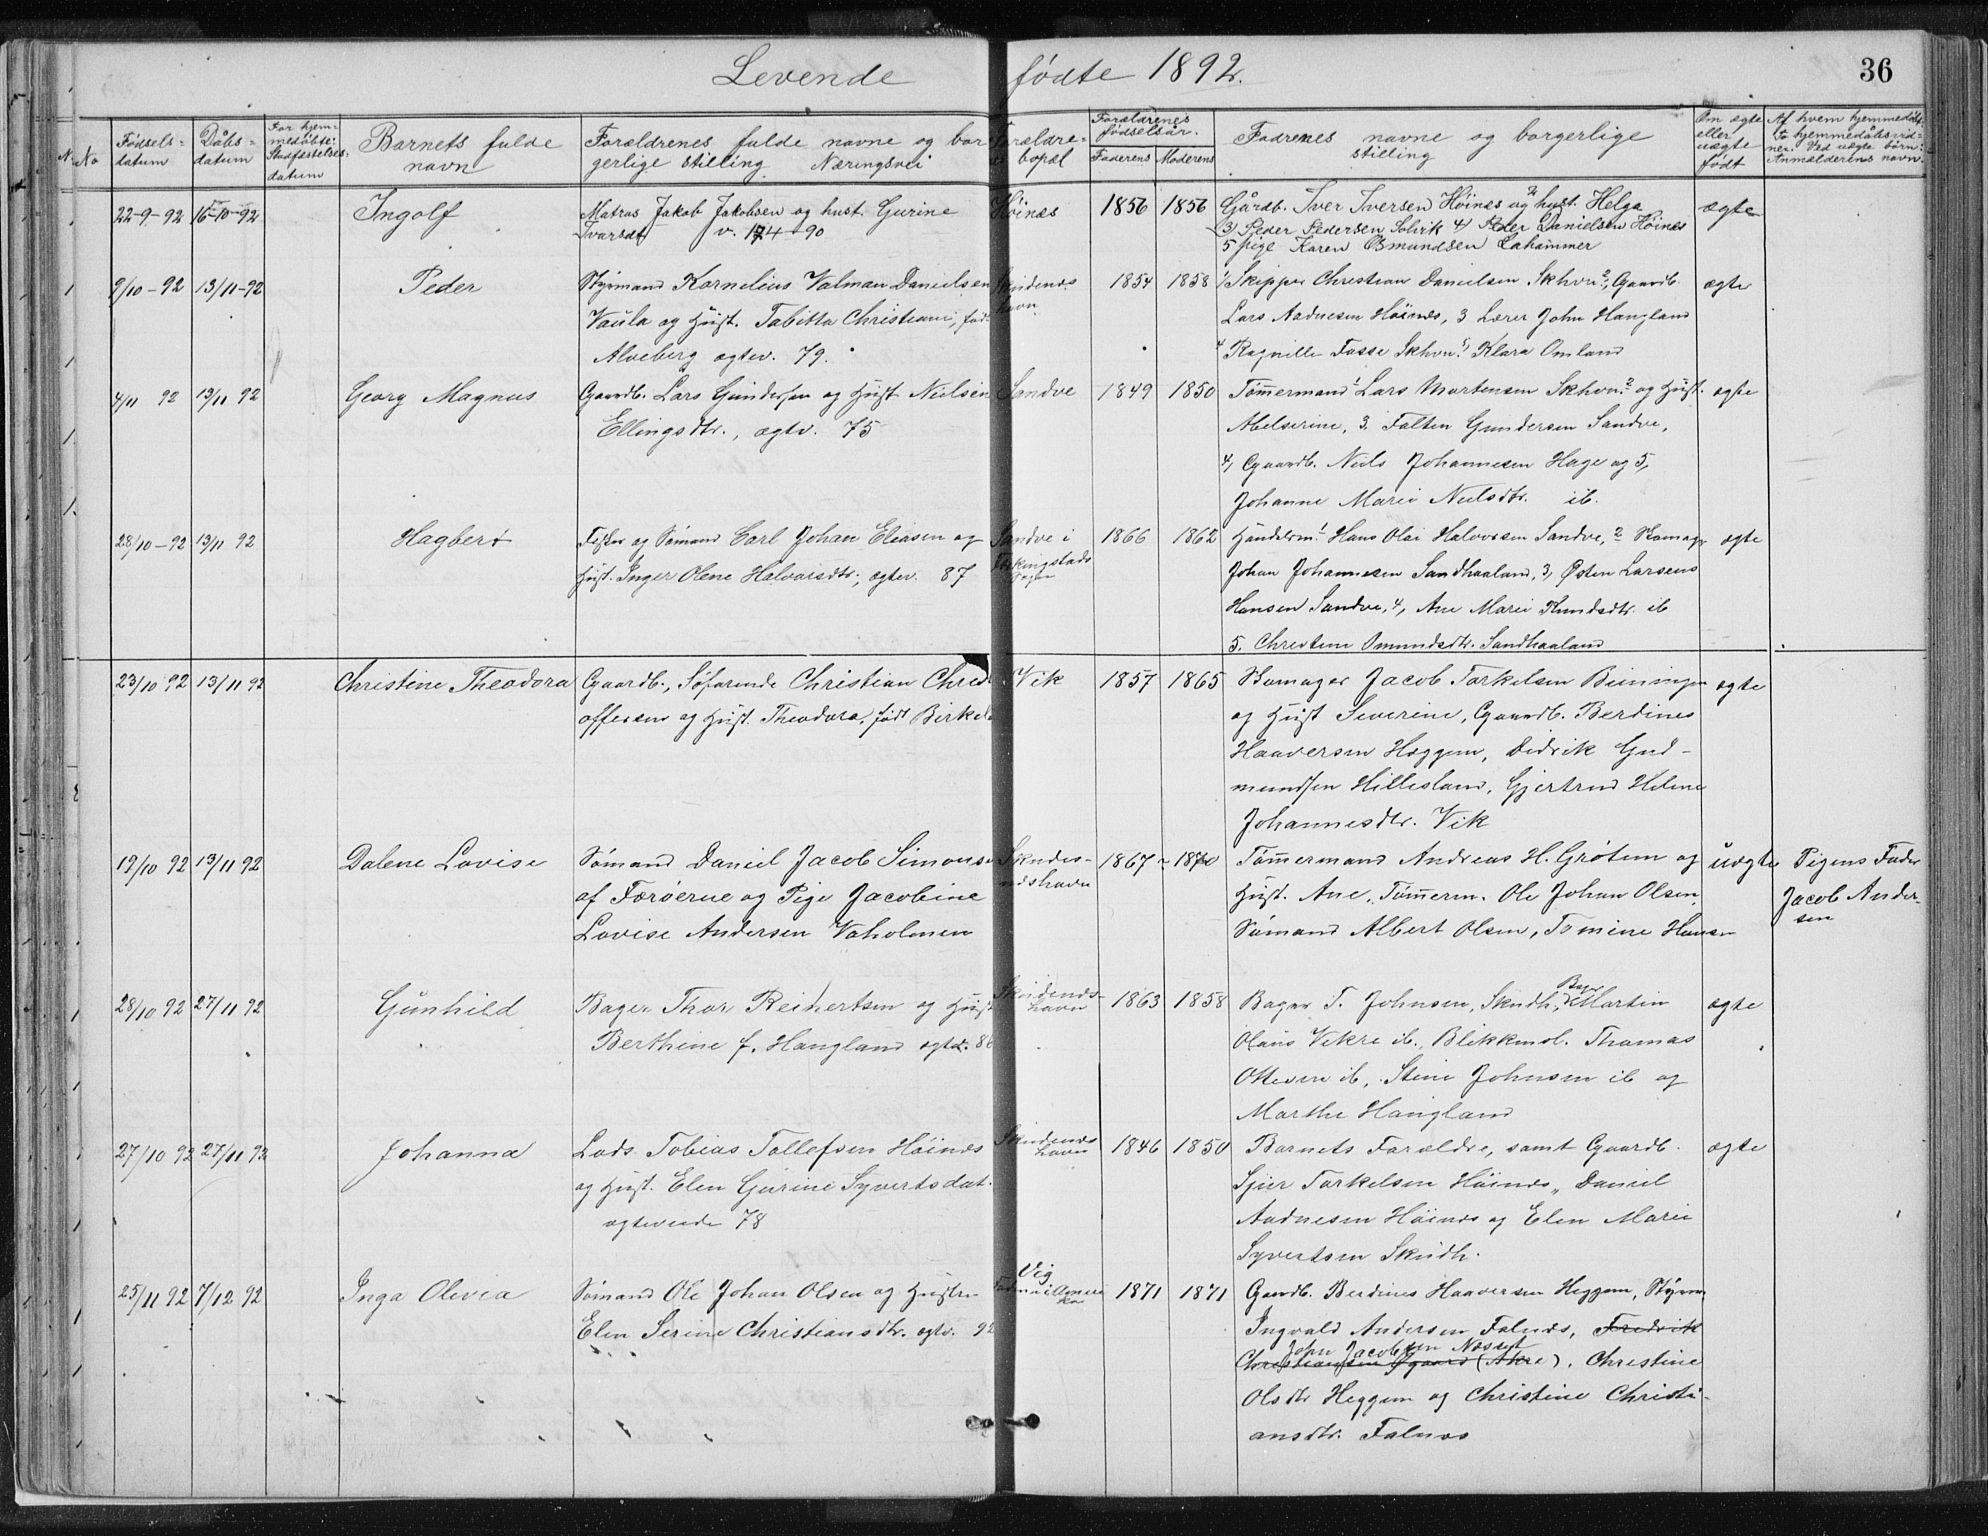 Levende fødte 1892.
36
No
Fødsels-datum
Dåbs-datum
For hjem-medøbte: Stadfæstelses-datum
Barnets fulde navn
Forældrenes fulde navne og borgerlige stilling Næringsvei
Forældrenes bopæl
Forældrenes fødselsår.
Faderens
Moderens
Fadrenes navne og borgerlige stilling
Om ægte eller uægte født
Af hvem hjemmedøbt. To hjemmedåbsvidner. Ved uægte børn: Anmelderens navn.
22-9-92 16-10-92 Ingolf
Matros Jakob Jakobsen og hust. Gurine
Ivarsdt v. 17/4 90
Høinæs 1856 1856
Gårdb. Iver Iversen Høinæs 2 og hust. Helga
3) Peder Pedersen Solvik 4) Peder Danielsen Høinæs
5 pige Karen Osmundsen Lahammer
ægte
9/10-92 13/11-92 Peder
Styrmand Kornelius Valman Danielsen
Vaula og Hust. Tabitta Christiani, født
Alveberg ægtev. 79.
Skudenes-havn 1854 1858
1) Skipper Christian Danielsen Skhvn 2, Gaardb.
Lars Aadnesen Høinæs, 3 Lærer John Hangland
4 Ragnille Fosse Skhvn. 5) Klara Omland
ægte
4/11 92 13/11 92 Georg Magnus
Gaardb. Lars Gundersen og Hust Nielsine
Ellingsdtr., ægtv. 75
Sandve 1849 1850
Tømmermand 1 Lars Mortensen Skhvn. 2 og Hust.
Abelserine, 3. Falten Gundersen Sandve,
4, Gaardb. Niels Johannesen Hage og 5,
Johanne Marie Nielsdtr. ib.
ægte
28/10-92 13/11 92 Hagbert
Fisker og Sømand Carl Johan Eliasen og
Hust. Inger Olene Halvorsdtr., ægtev. 87
Sandve i Torkingstads Sogn 1866 1862
Handelsm. 1 Hans Olai Halvorsen Sandve, 2 Skomager
Johan Johannesen Sandhaaland, 3, Østen Larsens
Hansen Sandve, 4, Ane Marie Knudsdtr. ib
5. Christine Omundsdtr. Sandhaaland
ægte
23/10 92 13/11 92 Christine Theodora
Gaardb., Søfarende Christian Christ-
offersen og Hust. Theodora, født Birkel
Vik 1857 1865
Skomager Jacob Torkelsen Beiningen
og Hust Severine, Gaardb. Berdines
Haaversen Heggem, Didrik Gud-
mundsen Hillesland, Gjertrud Helene
Johannesdtr. Vik
ægte
19/10 92 13/11 92 Dalene Lovise
Sømand Daniel Jacob Simonse
af Færøerne og Pige Jacobine
Lovise Andersen Vaholmen
Skudes-neshavn 1867 1870
Tømmermand Andreas H. Grøtum og
Hust. Ane, Tømmerm. Ole Johan Olsen,
Sømand Albert Olsen, Tomine Hansen
uægte
Pigens Fader
Jacob Ander-
sen
28/10 92 27/11 92 Gunhild
Bager Thor Reinertsen og Hust
Berthine f. Hangland ægtv. 86
Skudenes-havn 1863 1858
Bager T. Johnsen, Skudh., Bager Martin
Olaus Vikre ib., Blikkensl. Thomas
Ottesen ib, Stine Johnsen ib og
Marthe Hangland
ægte
27/10 92 27/11 92 Johanna
Lods Tobias Tollefsen Høinæs
og Hust. Elen Gurine Syvertsdat.
ægteviede 78
Skudenes-havn 1846 1850
Barnets Forældre, samt Gaardb.
Sjur Torkelsen Høinæs, Daniel
Aadnesen Høinæs og Elen Marie
Syvertsen Skudh.
ægte
25/11 92 7/12 92 Inga Olivia
Sømand Ole Johan Olsen og Hustru
Elen Serine Christiansdtr. ægtv. 92
Vig
Faderen i Amerika 1871 1871
Gaardb. Berdines Haaversen Heggem, Styrm.
Ingvald Andersen Falnæs, Fredrik
John Jacobsen Næsset
Christiansen Ygaard (Akre), Christine
Olsdtr Heggem og Christine Christi-
ansdtr. Falnæs